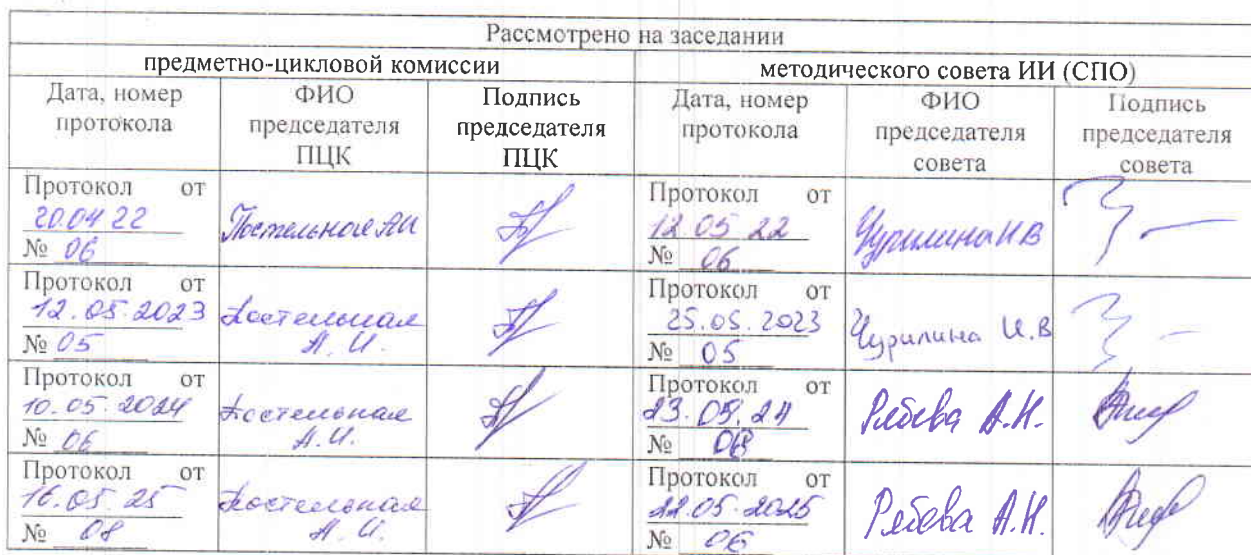 Рассмотрено на заседании
предметно-цикловой комиссии методического совета ИИ (СПО)
Дата, номер протокола ФИО председателя ПЦК Подпись председателя ПЦК Дата, номер протокола ФИО председателя совета Подпись председателя совета
Протокол от
20.04 22
№ 06
Постельная АИ
Протокол от
12 05 22
№ 06
Чурилина И В
Протокол от
12.05.2023
№ 05
Постельная
А. И.
Протокол от
25.05.2023
№ 05
Чурилина И.В
Протокол от
10.05.2024
№ 06
Постельная
А. И.
Протокол от
23.05.24
№
Рябева А.Н.
Протокол от
16.05.25
№ 08
Постельная
А. И.
Протокол от
22.05.2025
№ 06
Рябева А.Н.